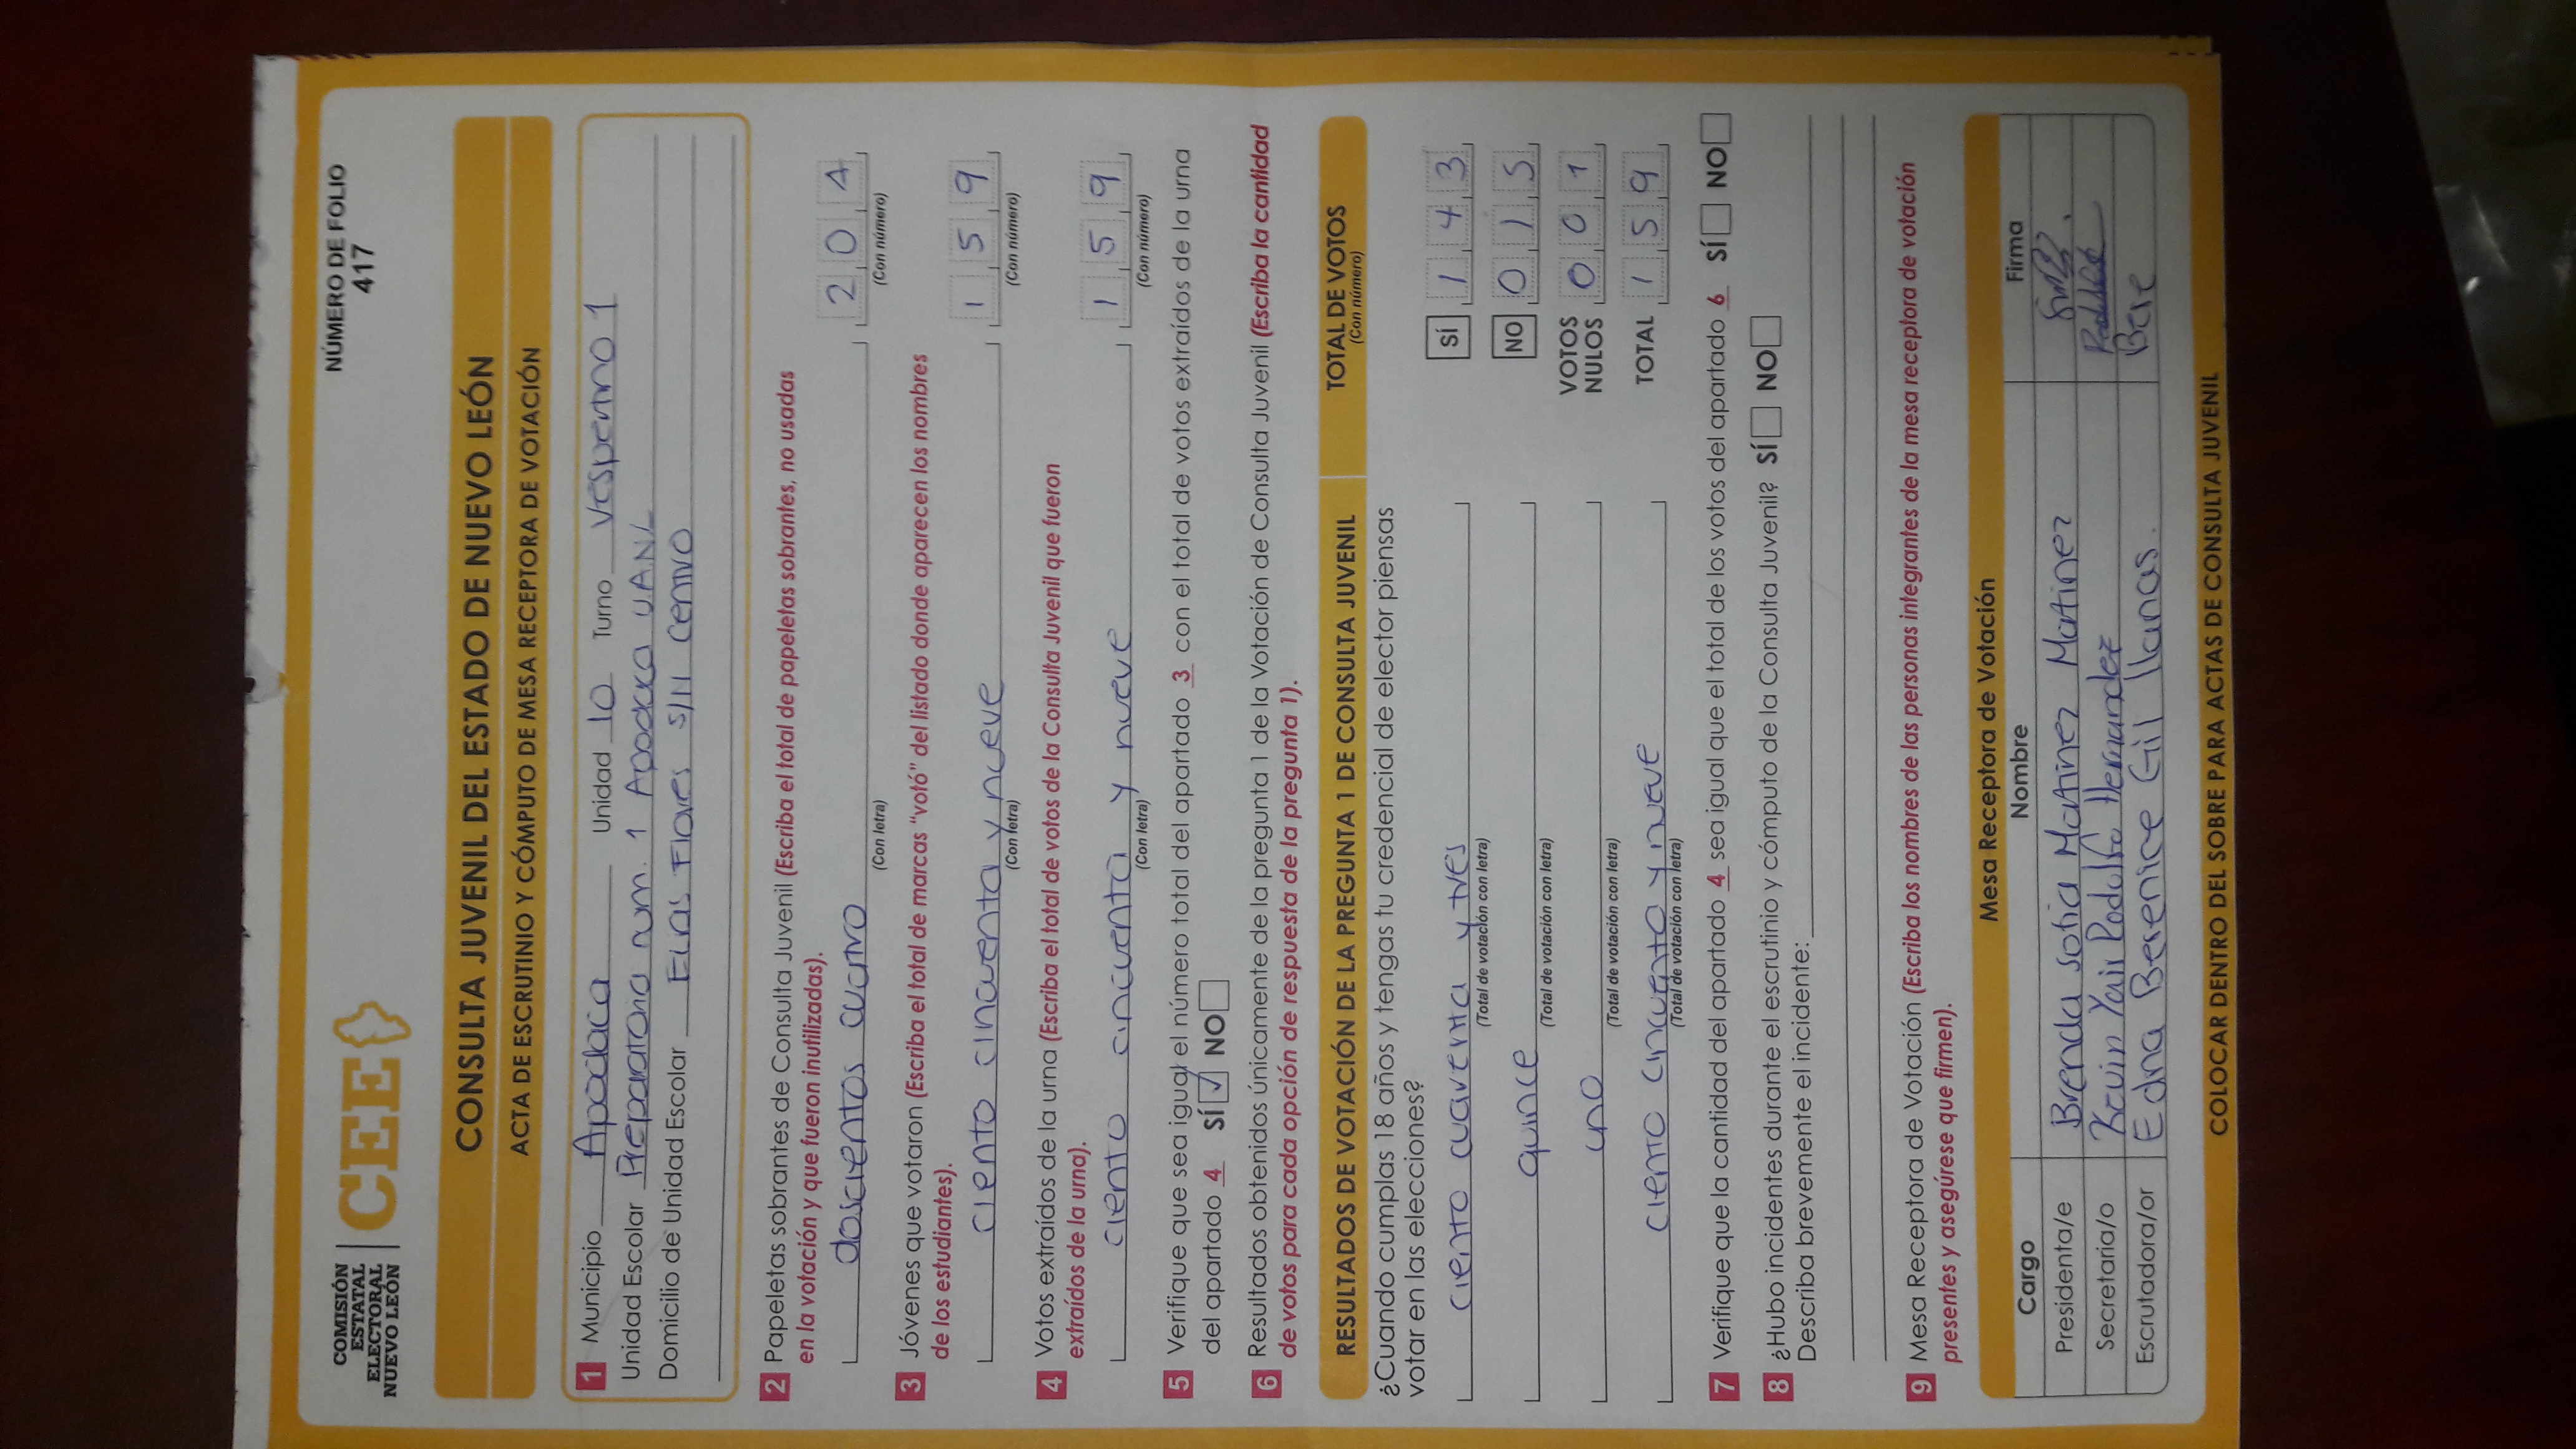 COMISIÓN
ESTATAL
ELECTORAL
NUEVO LEÓN
CEE
NÚMERO DE FOLIO
417
CONSULTA JUVENIL DEL ESTADO DE NUEVO LEÓN
ACTA DE ESCRUTINIO Y CÓMPUTO DE MESA RECEPTORA DE VOTACIÓN
1 Municipio Apodaca Unidad 10 Turno Vespertino 1
Unidad Escolar Preparatoria num. 1 Apodaca U.A.N.L
Domicilio de Unidad Escolar Elias Flores S/N Centro
2 Papeletas sobrantes de Consulta Juvenil (Escriba el total de papeletas sobrantes, no usadas
en la votación y que fueron inutilizadas).
doscientos cuatro 2 0 4
(Con letra) (Con número)
3 Jóvenes que votaron (Escriba el total de marcas "votó" del listado donde aparecen los nombres
de los estudiantes).
ciento cincuenta y nueve 1 5 9
(Con letra) (Con número)
4 Votos extraídos de la urna (Escriba el total de votos de la Consulta Juvenil que fueron
extraídos de la urna).
ciento cincuenta y nueve 1 5 9
(Con letra) (Con número)
5 Verifique que sea igual el número total del apartado 3 con el total de votos extraídos de la urna
del apartado 4 SÍ ✓ NO
6 Resultados obtenidos únicamente de la pregunta 1 de la Votación de Consulta Juvenil (Escriba la cantidad
de votos para cada opción de respuesta de la pregunta 1).
RESULTADOS DE VOTACIÓN DE LA PREGUNTA 1 DE CONSULTA JUVENIL TOTAL DE VOTOS
(Con número)
¿Cuando cumplas 18 años y tengas tu credencial de elector piensas
votar en las elecciones?
ciento cuarenta y tres SÍ 1 4 3
(Total de votación con letra)
quince NO 0 1 5
(Total de votación con letra)
uno VOTOS NULOS 0 0 1
(Total de votación con letra)
ciento cincuenta y nueve TOTAL 1 5 9
(Total de votación con letra)
7 Verifique que la cantidad del apartado 4 sea igual que el total de los votos del apartado 6 SÍ NO
8 ¿Hubo incidentes durante el escrutinio y cómputo de la Consulta Juvenil? SÍ NO
Describa brevemente el incidente:
9 Mesa Receptora de Votación (Escriba los nombres de las personas integrantes de la mesa receptora de votación
presentes y asegúrese que firmen).
Mesa Receptora de Votación
Cargo Nombre Firma
Presidenta/e Brenda Sofia Martinez Martinez
Secretaria/o Kevin Yair Rodolfo Hernandez
Escrutadora/or Edna Berenice Gil llanas. Bere
COLOCAR DENTRO DEL SOBRE PARA ACTAS DE CONSULTA JUVENIL